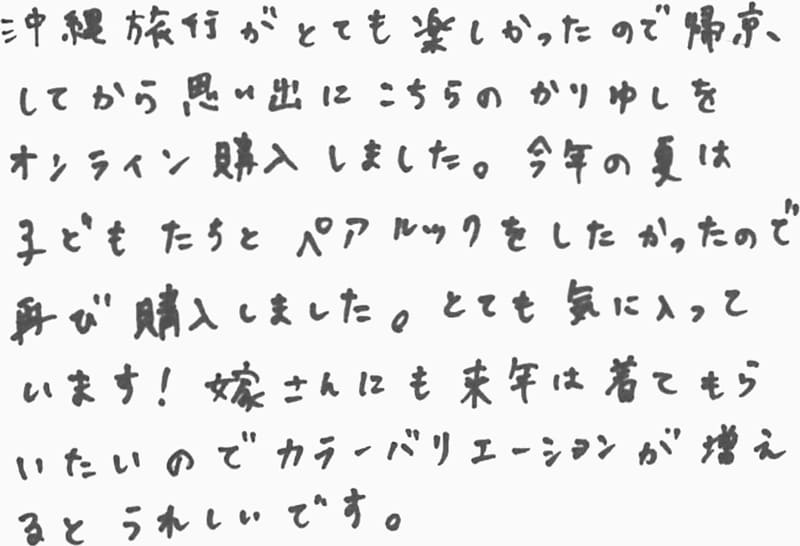 沖縄旅行がとても楽しかったので帰京、
してから思い出にこちらのかりゆしを
オンライン購入しました。今年の夏は
子どもたちとペアルックをしたかったので
再び購入しました。とても気に入って
います!嫁さんにも来年は着てもら
いたいのでカラーバリエーションが増え
るとうれしいです。